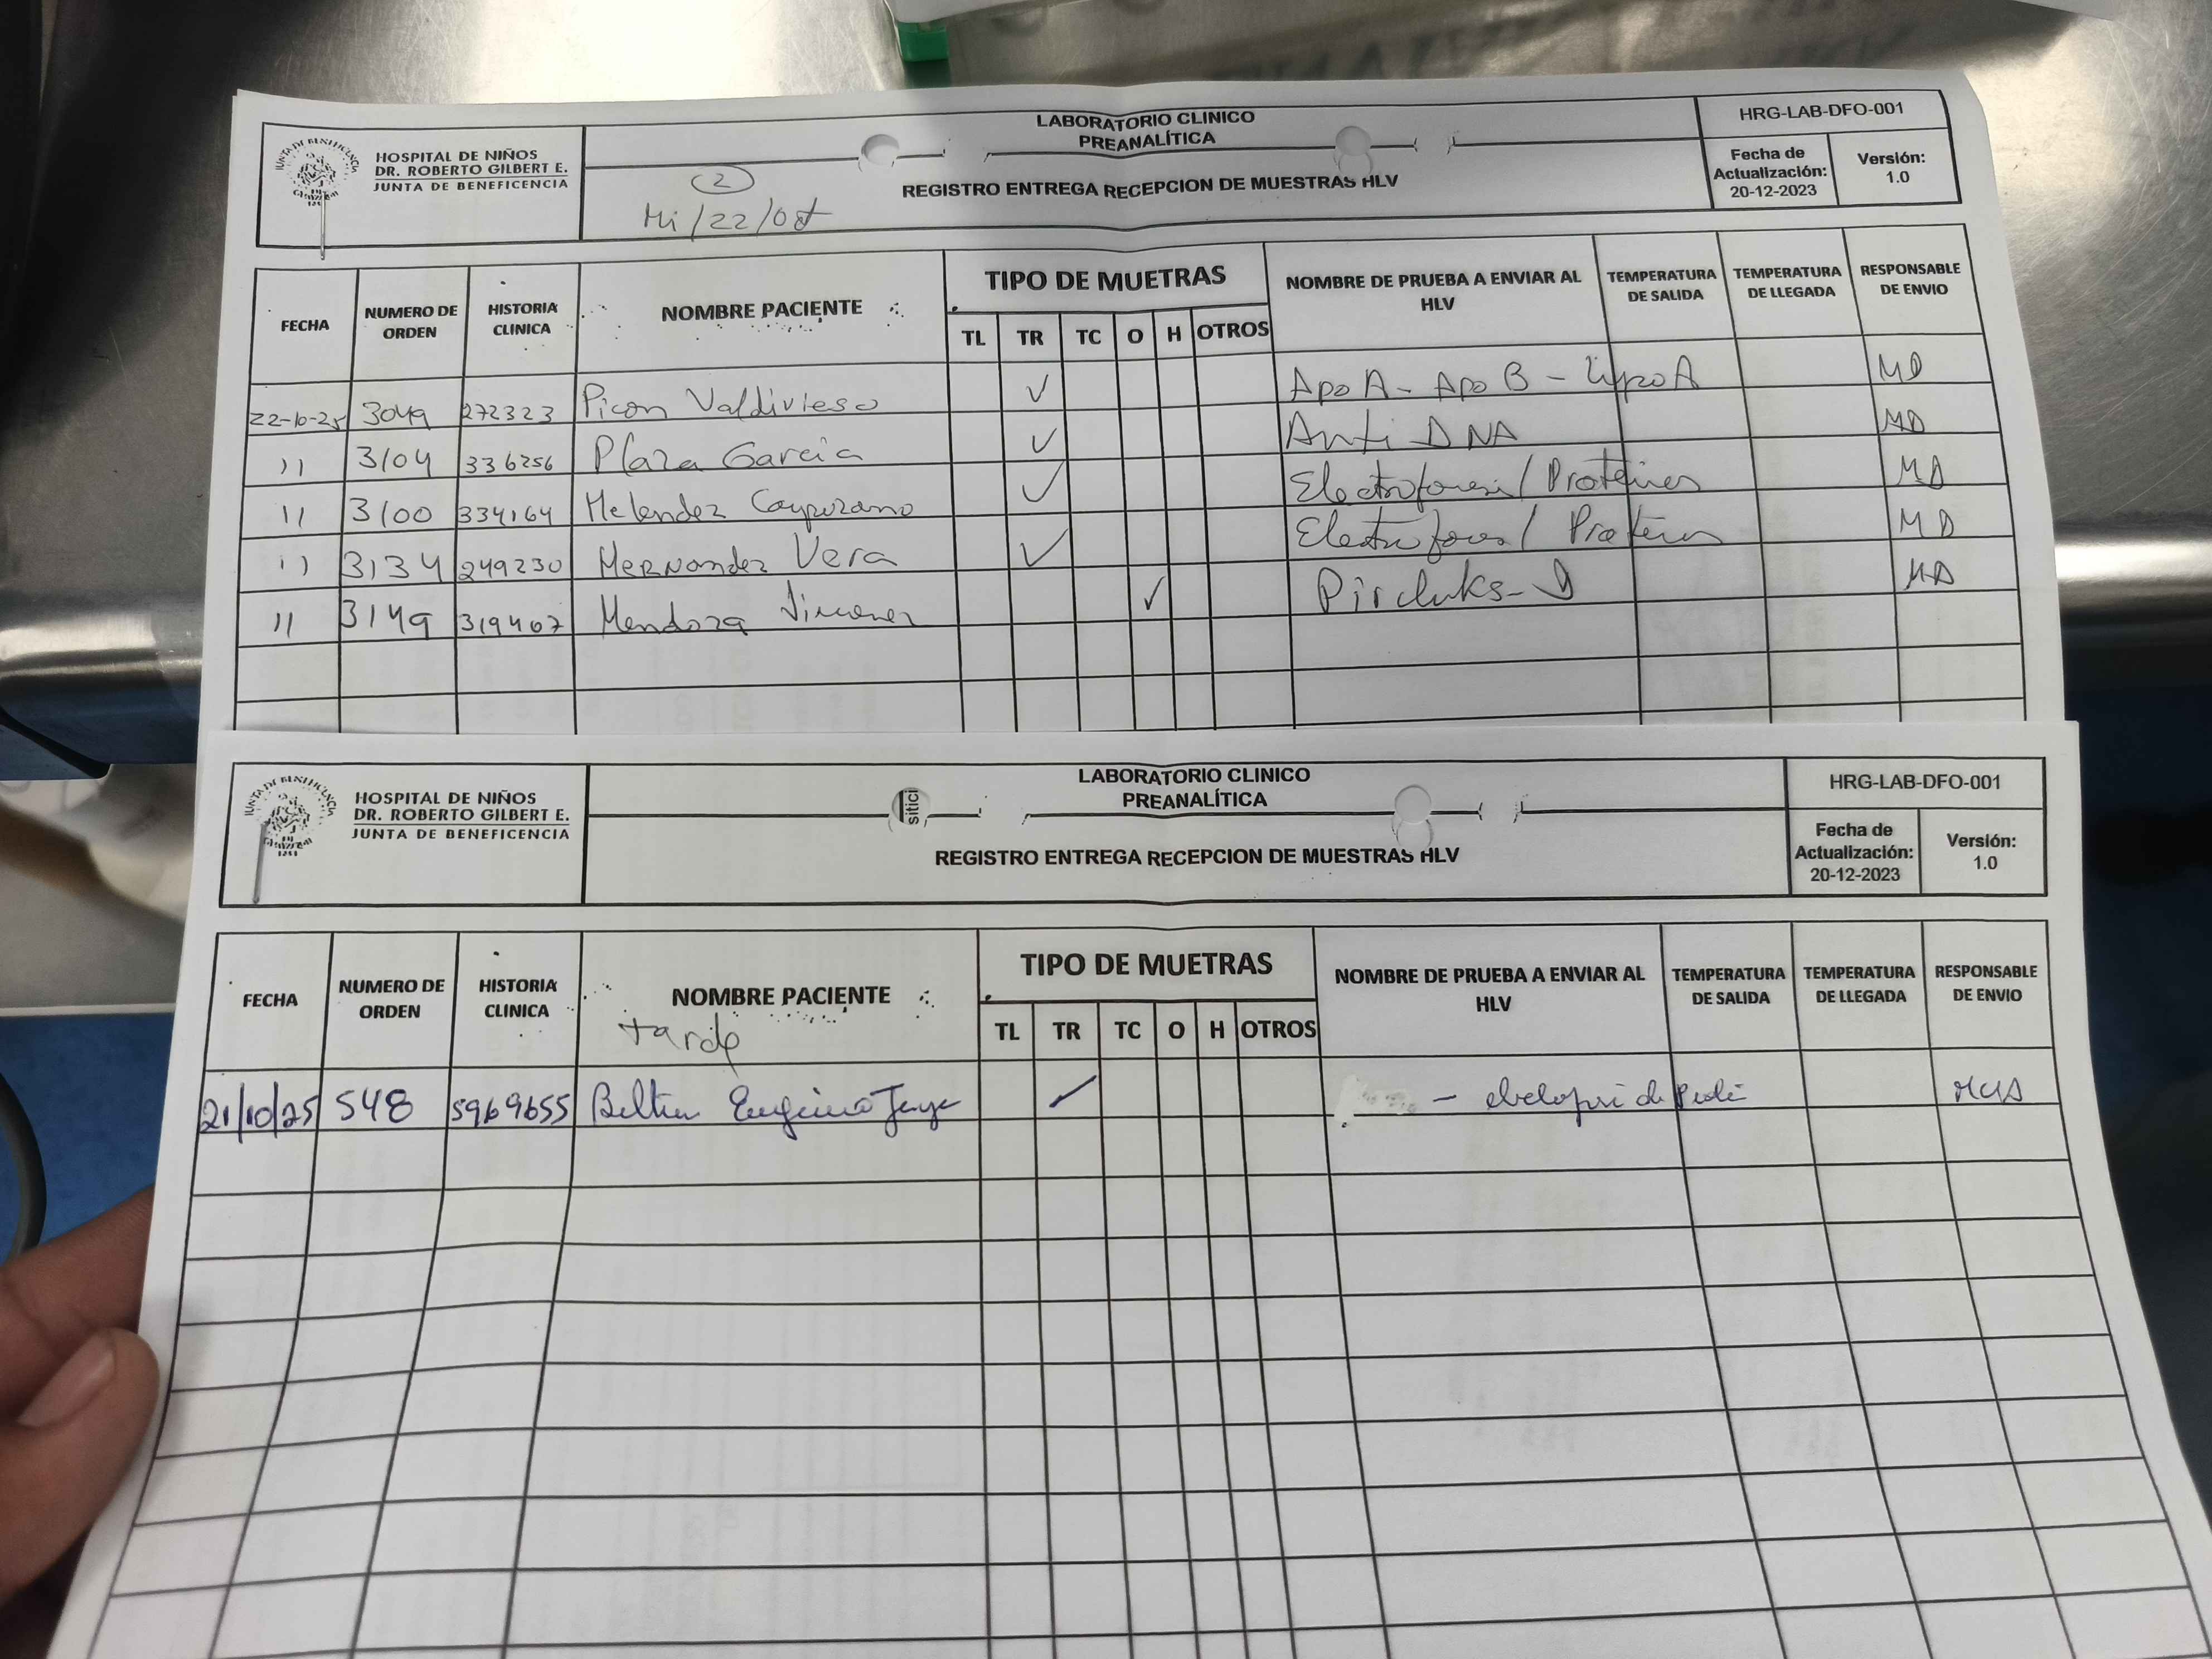 LABORATORIO CLINICO
PREANALÍTICA
HRG-LAB-DFO-001
HOSPITAL DE NIÑOS
DR. ROBERTO GILBERT E.
JUNTA DE BENEFICENCIA
2
Mi/22/Oct
REGISTRO ENTREGA RECEPCION DE MUESTRAS HLV
Fecha de Actualización: 20-12-2023
Versión: 1.0
FECHA NUMERO DE ORDEN HISTORIA CLINICA NOMBRE PACIENTE TIPO DE MUETRAS NOMBRE DE PRUEBA A ENVIAR AL HLV TEMPERATURA DE SALIDA TEMPERATURA DE LLEGADA RESPONSABLE DE ENVIO
TL TR TC O H OTROS
22-10-25 3049 272323 Picon Valdivieso ✓ Apo A - Apo B - MD
11 3104 336256 Plaza Garcia ✓ Anti DNA MD
11 3100 334164 Melendez ✓ Electroforesis / Proteinas MD
11 3134 249230 Hernandez Vera ✓ / MD
11 3149 319467 Mendoza Jimenez ✓ MD
LABORATORIO CLINICO
PREANALÍTICA
HRG-LAB-DFO-001
HOSPITAL DE NIÑOS
DR. ROBERTO GILBERT E.
JUNTA DE BENEFICENCIA
sitici
REGISTRO ENTREGA RECEPCION DE MUESTRAS HLV
Fecha de Actualización: 20-12-2023
Versión: 1.0
FECHA NUMERO DE ORDEN HISTORIA CLINICA NOMBRE PACIENTE TIPO DE MUETRAS NOMBRE DE PRUEBA A ENVIAR AL HLV TEMPERATURA DE SALIDA TEMPERATURA DE LLEGADA RESPONSABLE DE ENVIO
tarde
TL TR TC O H OTROS
21/10/25 548 5969655 ✓ - de